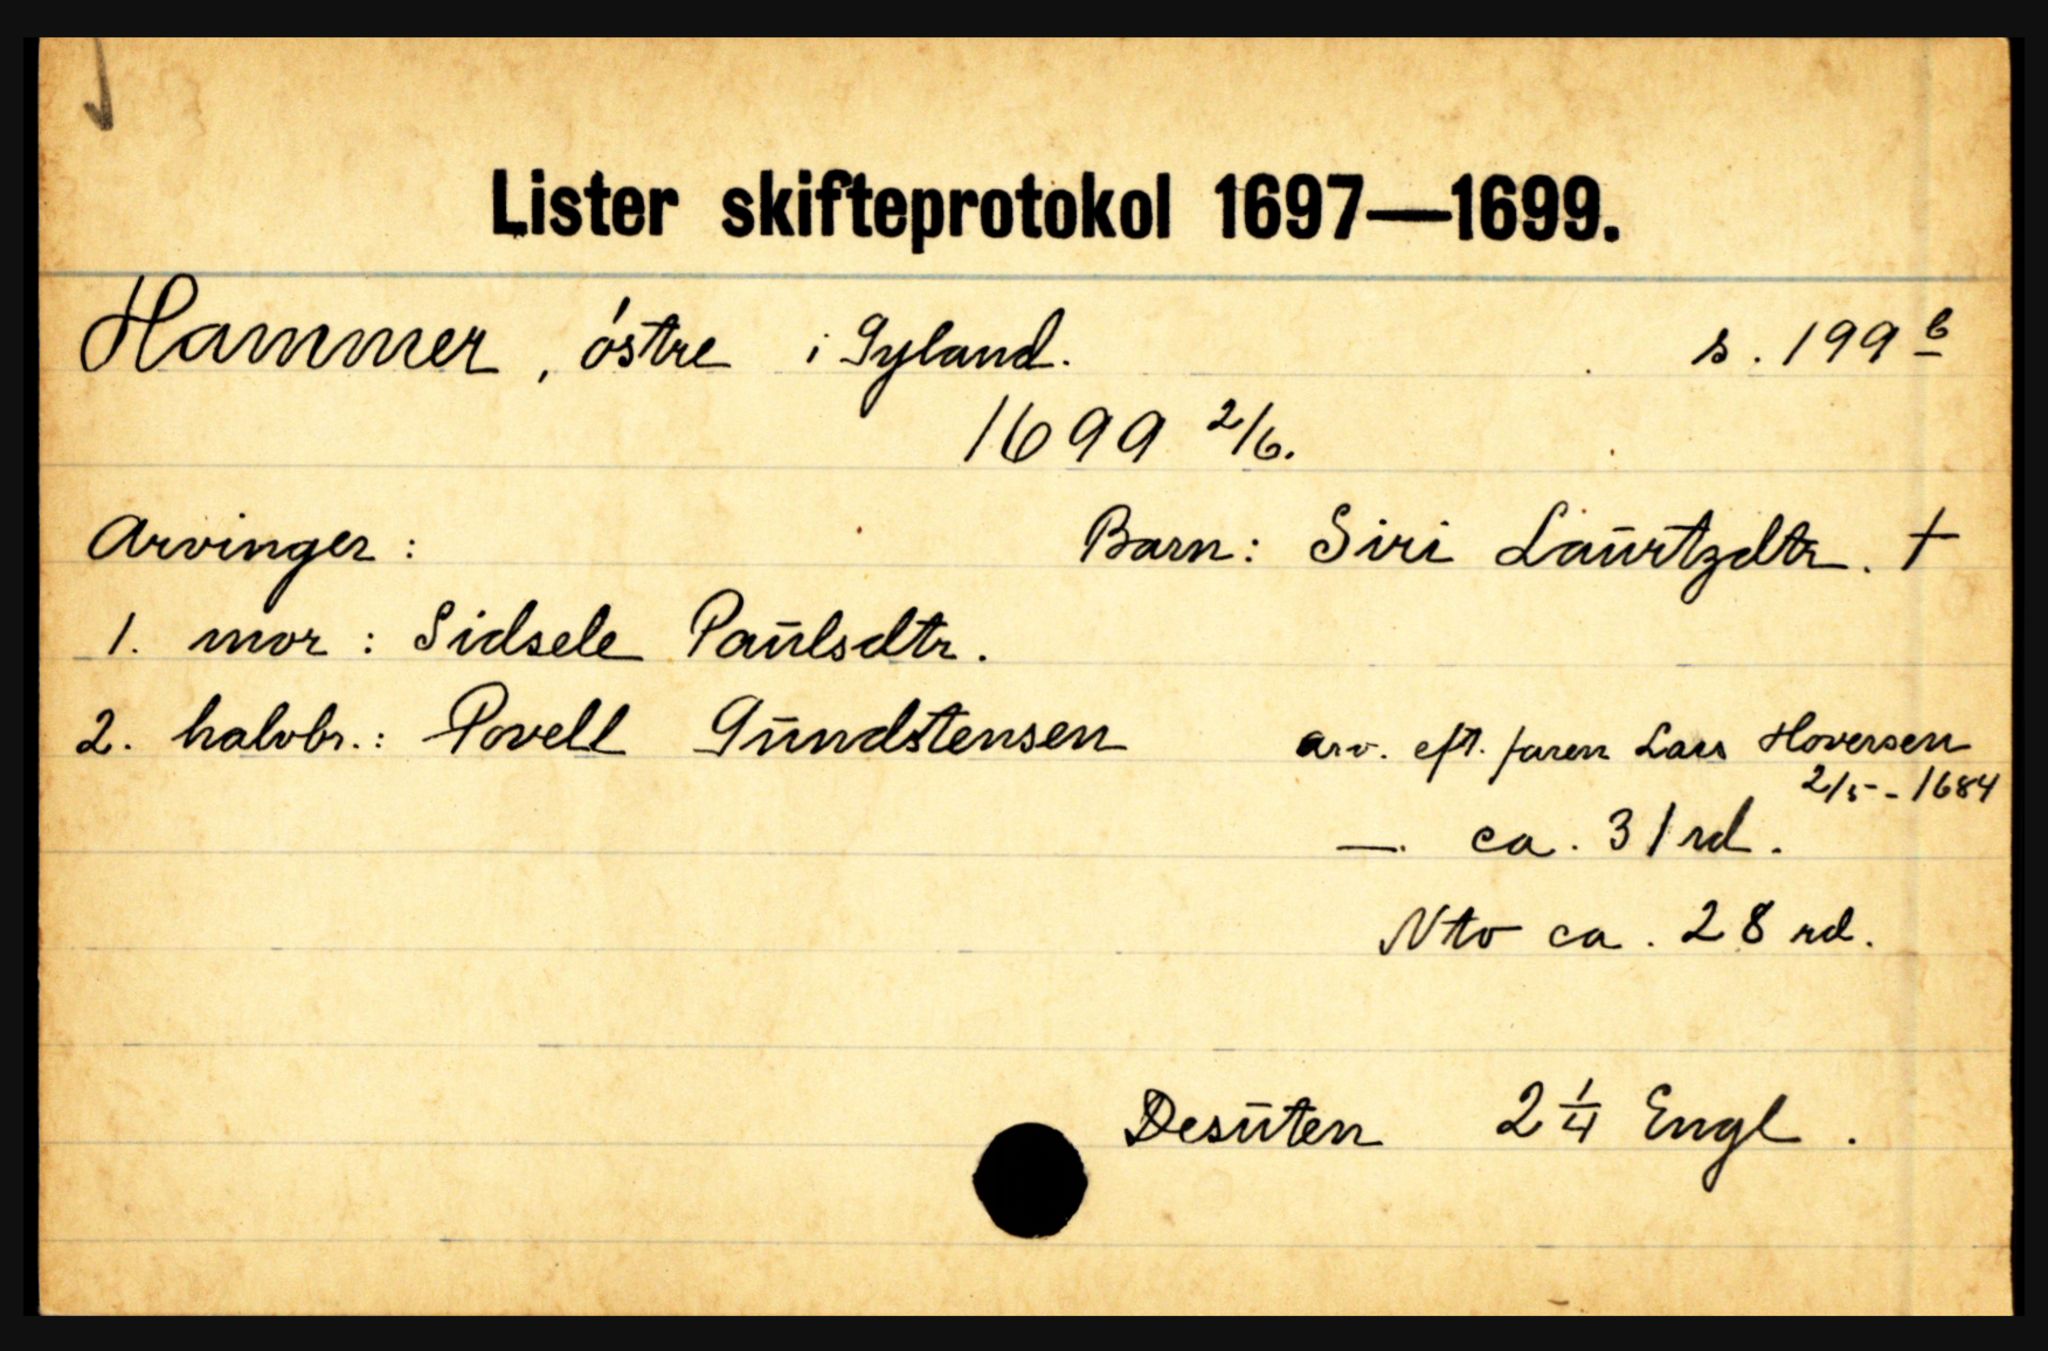 Lister skifteprotokol 1697—1699.
Hammer, östre i Gyland. s. 199 b
1699 2/6.
Arvinger: Barn: Siri Laurtzdtr. †
1. mor: Sidsele Paulsdtr.
2. halvbr.: Povell Gundstensen arv. eft. faren Lars Hoversen
2/5 - 1684
—. ca. 31 rd.
Nto ca. 28 rd.
Desuten 2 1/4 Engl.